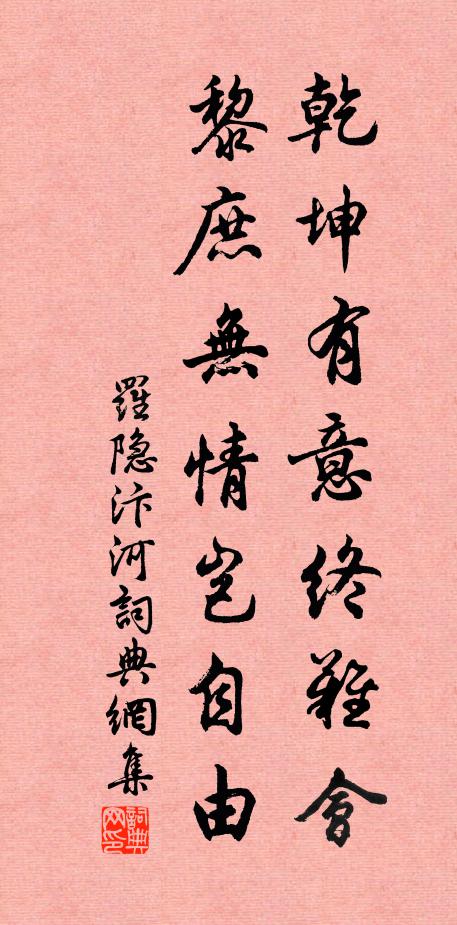 乾坤有意終難會
黎庶無情豈自由
羅隐汴河詞典網集
詞典网印